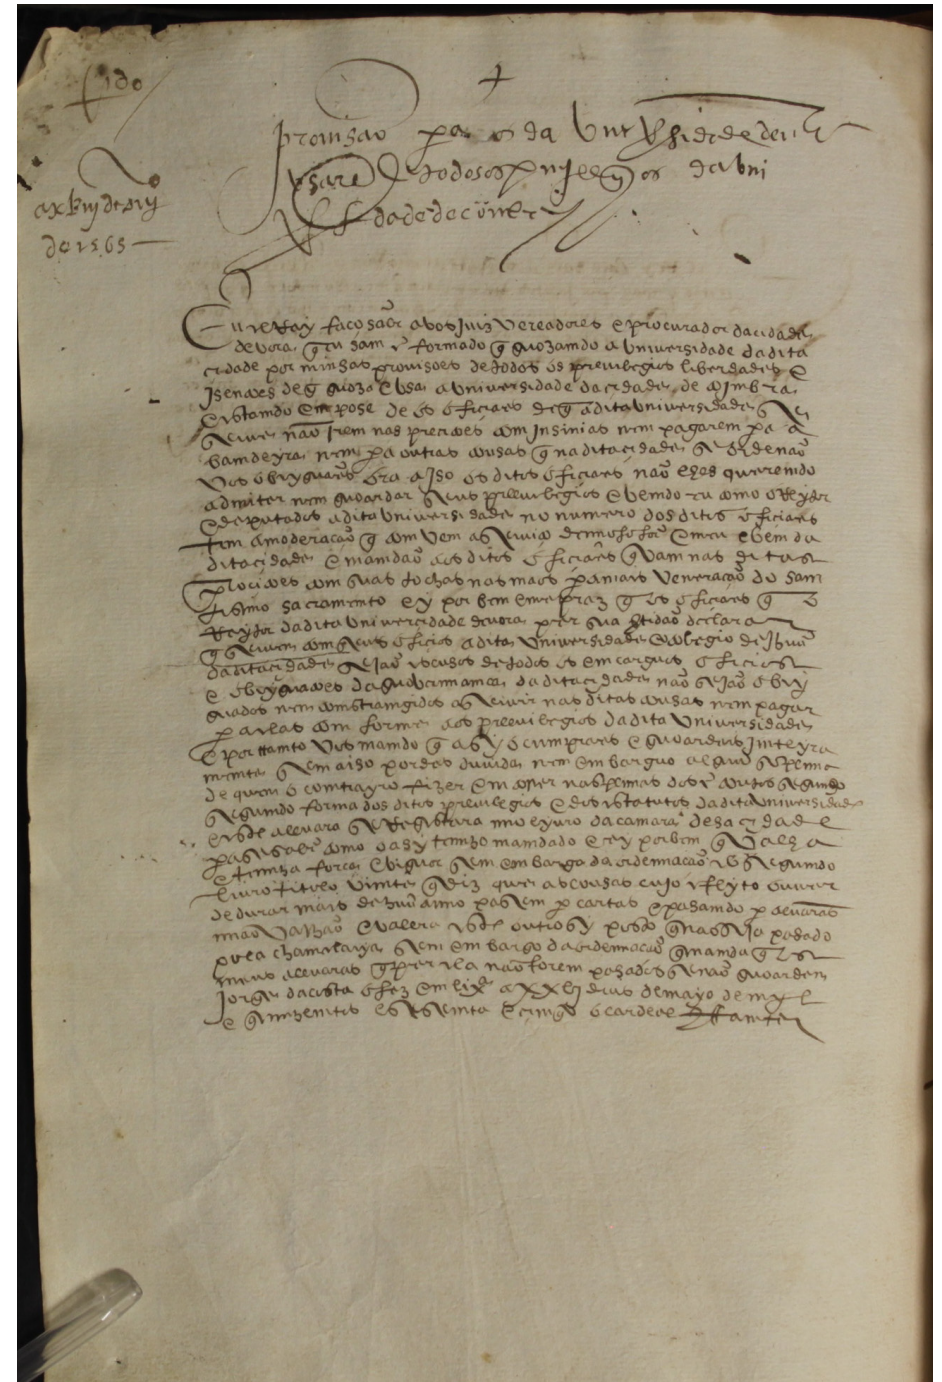 provisão pa os da Universidade devora
usarē de todos os privilegios da uni
dade de coimbra
de 1565
Eu el Rey faço saber a vos Juiz Vereadores e procurador da cidade
devora q eu sam formado q guozamdo a Universidade da dita
cidade por minhas provisoes de todos os previlegios liberdades e
Isençoes de q guoza e usa a Universidade da cidade de coimbra
e estamdo em pose de os oficiaes de q a dita Universidade se
serve não Irem nas precições com Insinias nem pagarem pa a
bamdeyra nem pa outras cousas q na dita cidade se ordenão
vos obryguaes ora a Iso os ditos oficiaes não lhos queremdo
admiter nem guoardar seus previlegios e vemdo eu como o Reytor
e deputados a dita Universidade no numero dos ditos oficiaes
tem a moderação q comvem a serviço de noso sor e meu e bem da
dita cidade e mandão aos ditos oficiaes q vam nas ditas
procições com suas tochas nas mãos pa mais veneração do sam
tisimo sacramento ey por bem e me praz q os oficiaes q o
Reytor da dita Universidade devora per sua certidão declarar
q servem com seus oficios a dita Universidade e colegio de Jhuu
da dita cidade sejão escusos de todos os emcargos oficios
e obryguações da guovernamça da dita cidade e não sejão obry
guados nem comstramgidos a servir nas ditas cousas nem pagar
pa elas comforme aos previlegios da dita Universidade
e portamto vos mamdo q asy o cumpraes e guoardeis Imteyra
mente sem a iso pordes duvida nem embarguo algum so pena
de quem o comtrayro fizer emcorrer nas penas dos coutos segundo
segundo forma dos ditos previlegios e dos estatutos da dita Universidade
e este alvara se Registara no livro da camara desa cidade
pa se saber como o asy tenho mamdado e ey por bem q valha
e tenha força e viguor sem embargo da ordenação do segumdo
livro titolo vimte q diz que as cousas cujo efeyto ouver
de durar mais de hum anno pasem per cartas e pasamdo per alvaras
não valhão e valera este outrosy posto q não seja pasado
pela chamcelaria sem embargo da ordenação q manda q os
meus alvaras q per ela não forem pasados se não guoardem
Jorge da costa o fez em lixa a xxbj dias de mayo de mil
e quinhentos e sesenta e cimqo o cardeal Iffamte